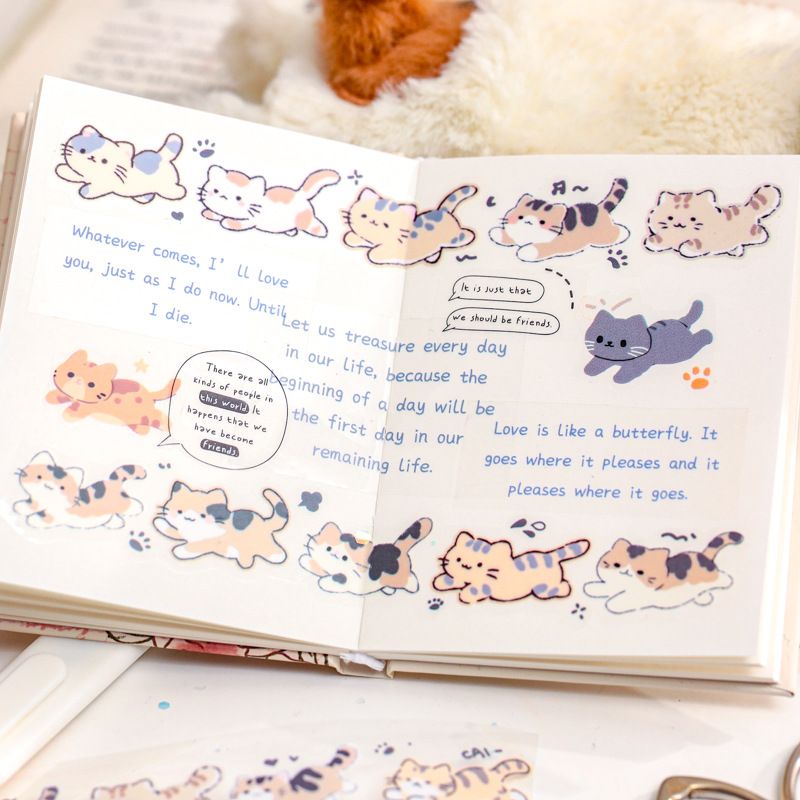 Whatever comes, I' ll love
you, just as I do now. Until
I die.
There are all
kinds of people in
this world. It
happens that we
have become
friends.
Let us treasure every day
in our life, because the
beginning of a day will be
the first day in our
remaining life.
It is just that
we should be friends.
Love is like a butterfly. It
goes where it pleases and it
pleases where it goes.
CAI~